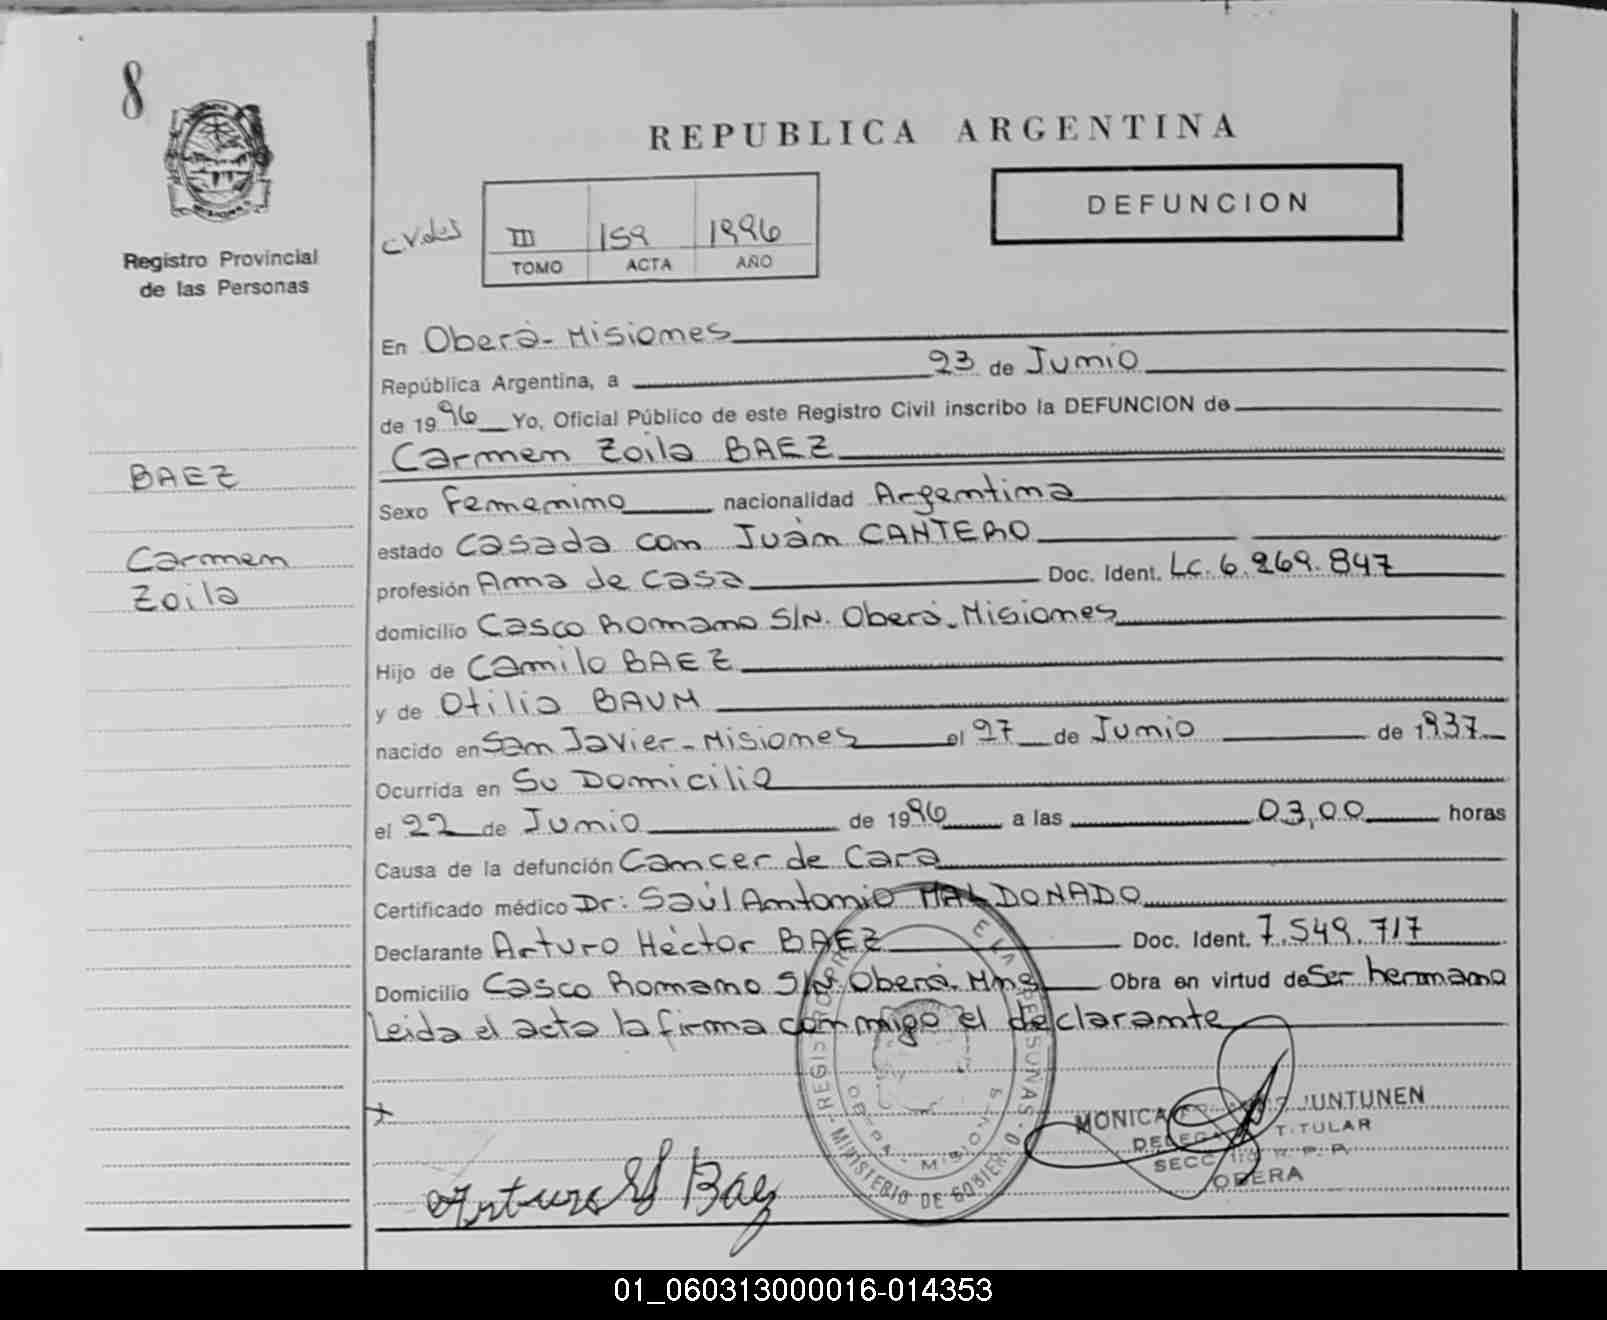 8
REPUBLICA ARGENTINA
DEFUNCION
III 159 1996
TOMO ACTA AÑO
Registro Provincial
de las Personas
En Oberá - Misiones
República Argentina, a 23 de Junio
de 1996 Yo, Oficial Público de este Registro Civil inscribo la DEFUNCION de
Carmen Zoila BAEZ
BAEZ
Carmen
Zoila
Sexo Femenino nacionalidad Argentina
estado Casada con Juán CANTERO
profesión Ama de Casa Doc. Ident. Lc. 6.269.847
domicilio Casco Romano S/N. Oberá - Misiones
Hijo de Camilo BAEZ
y de Otilia BAUM
nacido en San Javier - Misiones el 27 de Junio de 1937
Ocurrida en Su Domicilio
el 22 de Junio de 1996 a las 03,00 horas
Causa de la defunción Cancer de Cara
Certificado médico Dr: Saúl Antonio MALDONADO
Declarante Arturo Héctor BAEZ Doc. Ident. 7.549.717
Domicilio Casco Romano S/Nº Oberá. Mnes Obra en virtud de Ser hermano
Leida el acta la firma conmigo el declarante
REGISTRO PERSONAS - MINISTERIO DE GOBIERNO
OBERA - MISIONES
MONICA JUNTUNEN
TITULAR
OBERA
Arturo H Baez
01_060313000016-014353